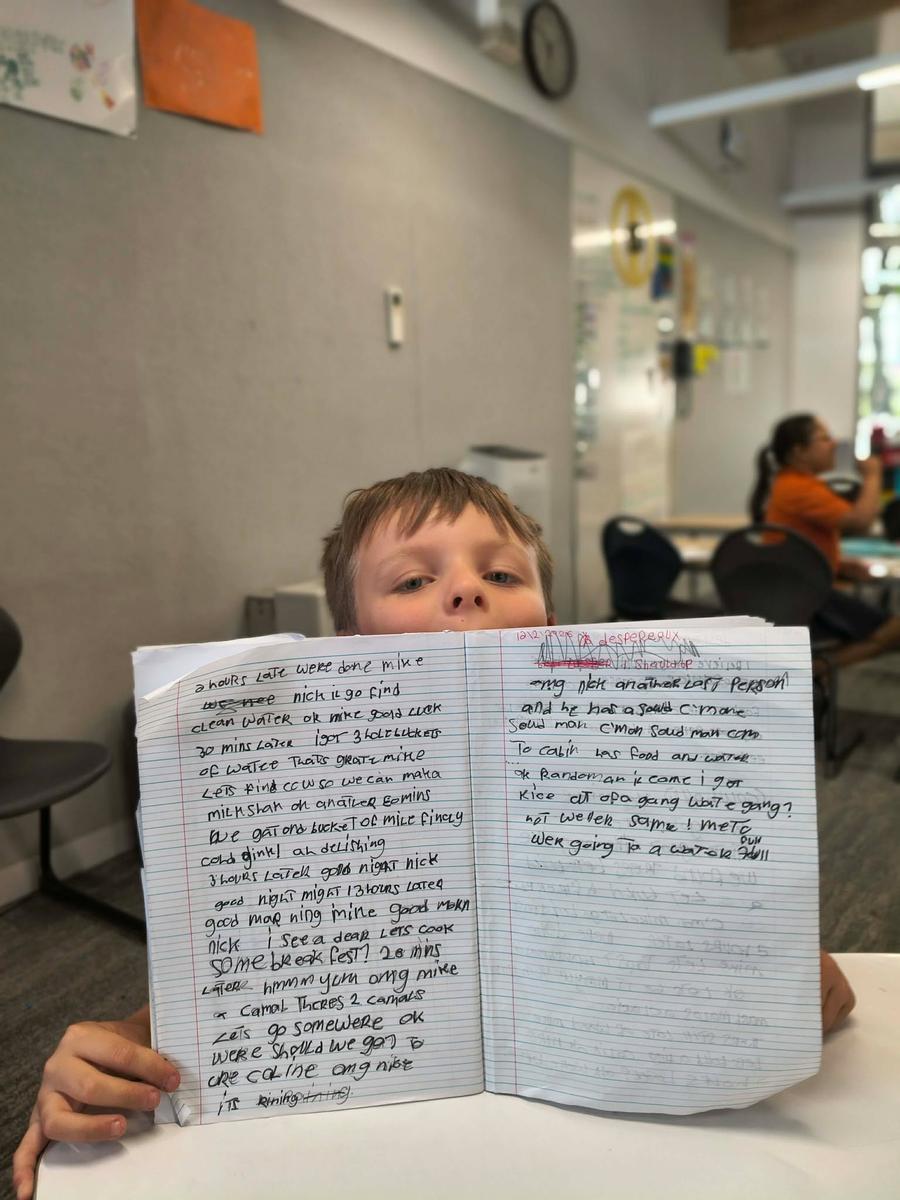 2 hours Late were done mike
we nee nick il go find
clean water ok mike good Luck
30 mins Later i got 3 hole buckets
of water Thats grate mike
Lets Find cow so we can make
milkshak oh anater 20 mins
we got one bucket of milk finely
cold dink! ah delishing
3 hours Later good night nick
good night might 13 hours Later
good mor ning mike good morn
nick I see a dear Lets cook
some breakfest? 20 mins
Later hmmm yum omg mike
a camal Theres 2 camals
Lets go somewere ok
were should we go? To
omg nike
its rining
of despereaux
I should of
omg nick another Lost Person
and he has a soud c'mone
soud man c'mon soud man com
To cabin has food and water
ok Randoman il come i got
Kice out of a gang wate gang?
not weller same! me To
wer going To a water Full